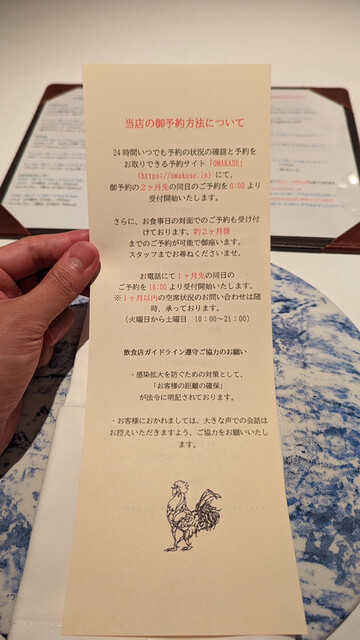 当店の御予約方法について
24時間いつでも予約の状況の確認と予約を
お取りできる予約サイト「OMAKASE」
(https://omakase.in)にて、
御予約の２ヶ月先の同日のご予約を0:00より
受付開始いたします。
さらに、お食事日の対面でのご予約も受け付
けております。約２ヶ月後
までのご予約が可能で御座います。
スタッフまでお尋ねくださいませ。
お電話にて１ヶ月先の同日の
ご予約を16:00より受付開始いたします。
※１ヶ月以内の空席状況のお問い合わせは随
時、承っております。
(火曜日から土曜日　10:00～21:00)
飲食店ガイドライン遵守ご協力のお願い
・感染拡大を防ぐための対策として、
「お客様の距離の確保」
が法令に明記されております。
・お客様におかれましては、大きな声での会話は
お控えいただきますよう、ご協力をお願いいたし
ます。